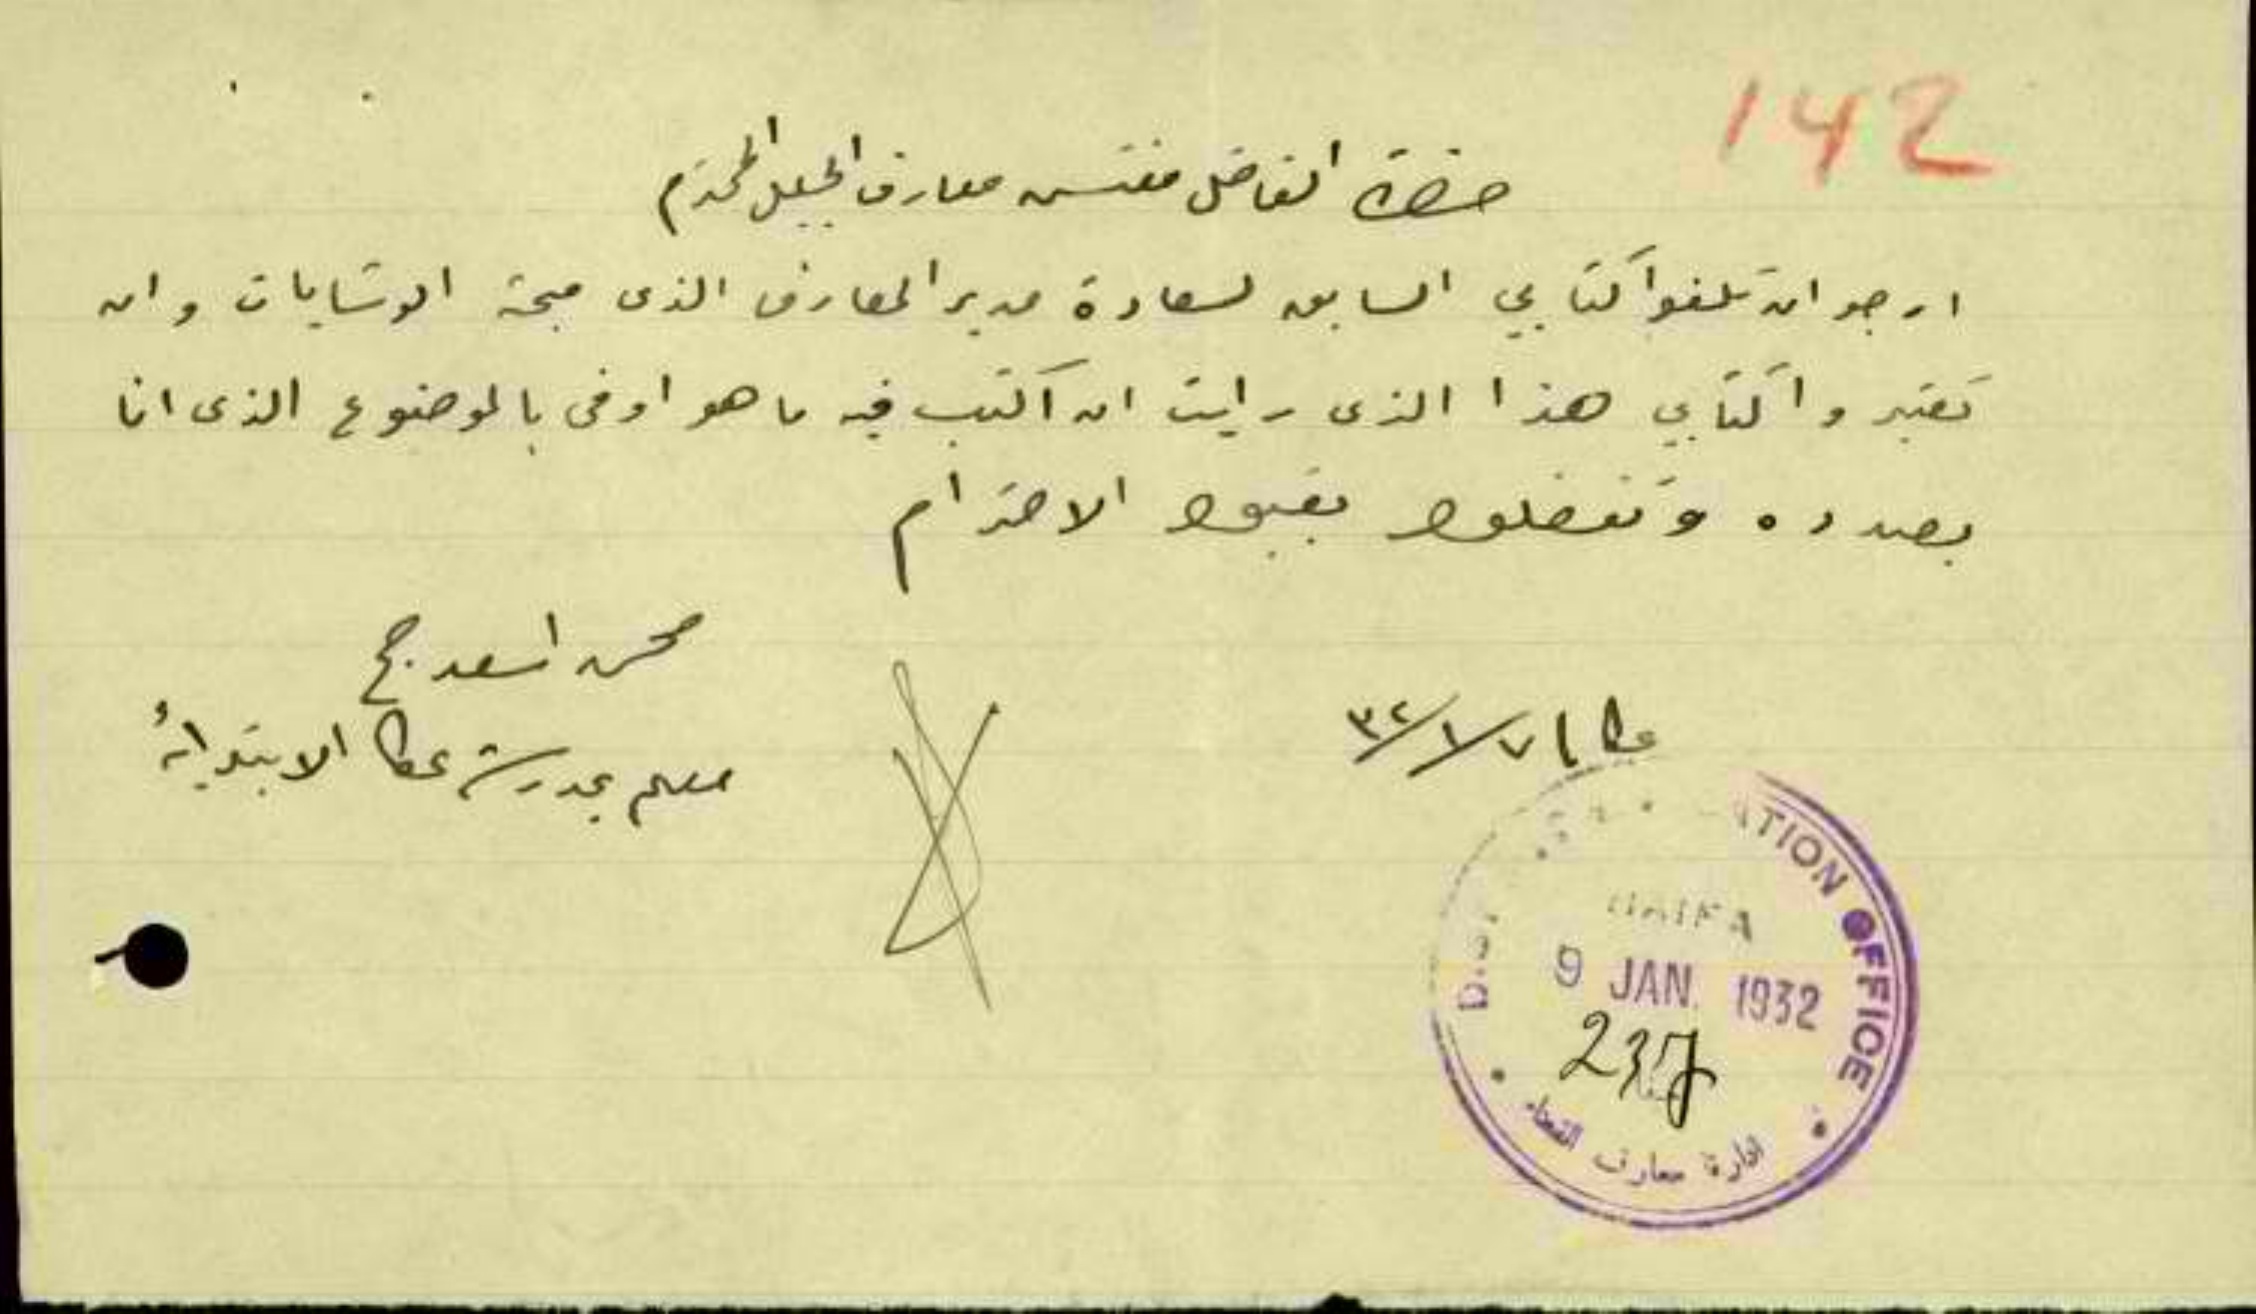 142
حضرة الفاضل مفتش معارف الجليل المحترم
ارجو ان تلغوا كتابي السابق لسعادة مدير المعارف الذي الوشايات وان
تعتبروا كتابي هذا الذي رايت ان اكتب فيه ما هو اوفى بالموضوع الذي انا
بصدده وتفضلوا بقبول الاحترام
اسعد
معلم بمدرسة عكا الابتدائية
عكا ٣٢/١/٧
ATION OFFICE
HAIFA
9 JAN. 1932
237
ادارة معارف القضاء